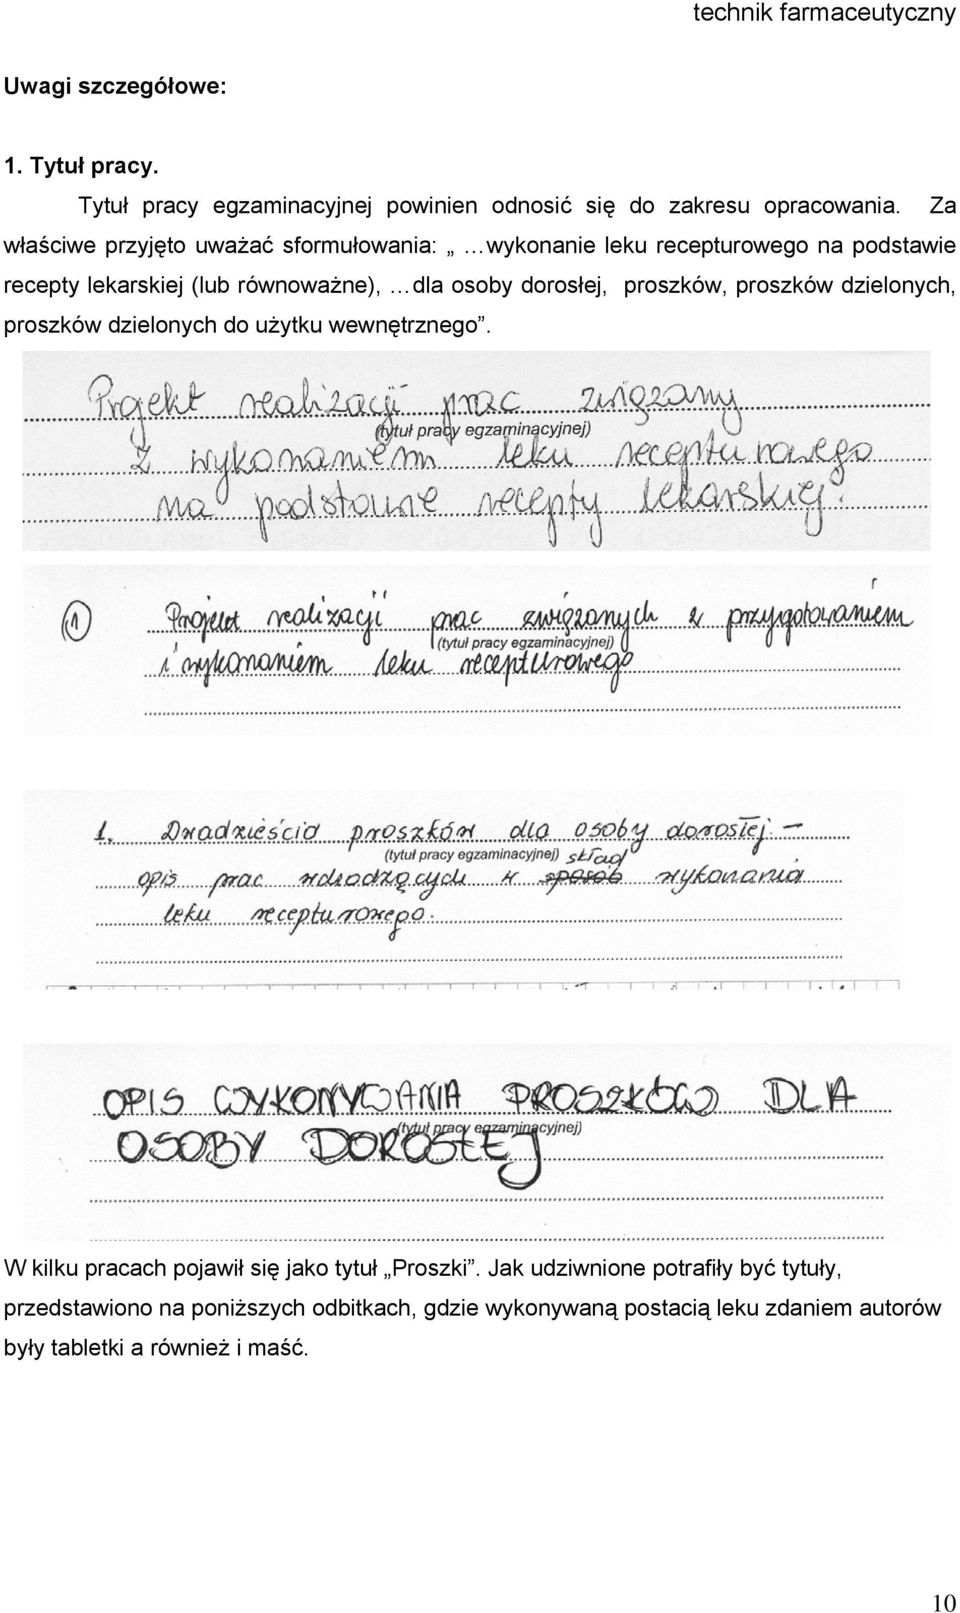 technik farmaceutyczny
Uwagi szczegółowe:
1. Tytuł pracy.
Tytuł pracy egzaminacyjnej powinien odnosić się do zakresu opracowania. Za
właściwe przyjęto uważać sformułowania: „ …wykonanie leku recepturowego na podstawie
recepty lekarskiej (lub równoważne), …dla osoby dorosłej, proszków, proszków dzielonych,
proszków dzielonych do użytku wewnętrznego”.
Projekt realizacji prac związany
(tytuł pracy egzaminacyjnej)
z wykonaniem leku recepturowego
na podstawie recepty lekarskiej.
1 Projekt realizacji prac związanych z przygotowaniem
(tytuł pracy egzaminacyjnej)
i wykonaniem leku recepturowego
1. Dwadzieścia proszków dla osoby dorosłej –
(tytuł pracy egzaminacyjnej) skład
opis prac wchodzących w sposób wykonania
leku recepturowego.
OPIS WYKONYWANIA PROSZKÓW DLA
(tytuł pracy egzaminacyjnej)
OSOBY DOROSŁEJ
W kilku pracach pojawił się jako tytuł „Proszki”. Jak udziwnione potrafiły być tytuły,
przedstawiono na poniższych odbitkach, gdzie wykonywaną postacią leku zdaniem autorów
były tabletki a również i maść.
10